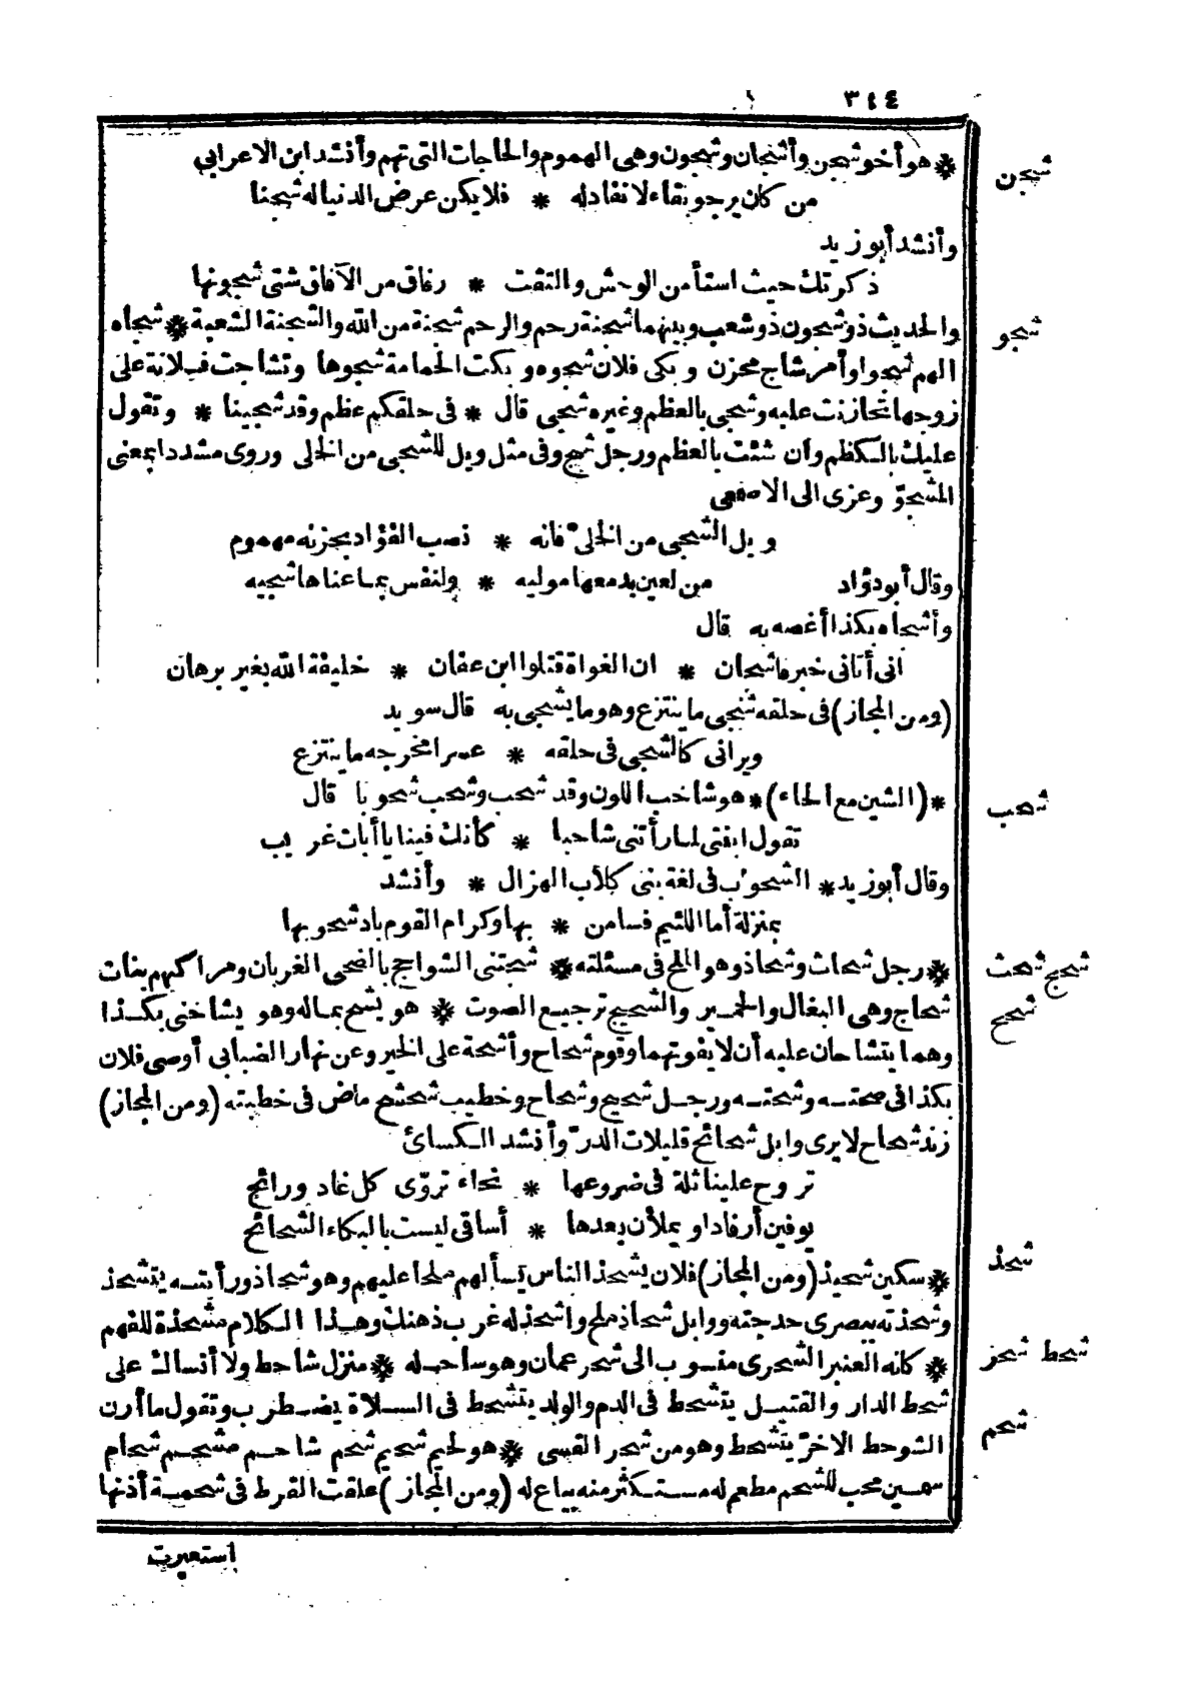 ٣٤٤
شجن
* هو أخو شجن وأشجان وشجون وهى الهموم والحاجات التى تهم وأنشد ابن الاعرابي
من كان يرجو بقاء لا نفاد له * فلا يكن عرض الدنيا له شجنا
وأنشد أبو زيد
ذكرتك حيث استأمن الوحش والتقت * رفاق من الآفاق شتى شجونها
شجو
والحديث ذو شجون ذو شعب وبينهما شجنة رحم والرحم شجنة من الله والشجنة الشعبة * شجاه
الهم شجوا وأمر شاج محزن وبكى فلان شجوه وبكت الحمامة شجوها وتشاجت فلانة على
زوجها تحازنت عليه وشجى بالعظم وغيره شجى قال * فى حلقكم عظم وقد شجينا * وتقول
عليك بالكظم وان شئت بالعظم ورجل شج وفى مثل ويل للشجى من الخلى وروى مشددا بمعنى
المشجوّ وعزى الى الاصمعى
ويل الشجى من الخلىّ فانه * نصب الفؤاد بحزنه مهموم
وقال أبو دؤاد من لعين بدمعها موليه * ولنفس بما عناها شجيه
وأشجاه بكذا أغصه به قال
انى أتانى خبر فاشجان * ان الغواة قتلوا ابن عفان * خليفة الله بغير برهان
(ومن المجاز) فى حلقه شجى ما ينتزع وهو ما يشجى به قال سويد
ويرانى كالشجى فى حلقه * عسرا مخرجه ما ينتزع
شحب
*(الشين مع الحاء)* هو شاحب اللون وقد شحب وشحب شحوبا قال
تقول ابنتى لما رأتنى شاحبا * كأنك فينا يا أبات غريب
وقال أبو زيد * الشحوب فى لغة بنى كلاب الهزال * وأنشد
بمنزلة أما اللئيم فسامن * بها وكرام القوم باد شحوبها
شحث شحج
* رجل شحاث وشحاذ وهو الملح فى مسئلته * شجتنى الشواحج بالضحى الغربان ومراكبهم بنات
شحح
شحاج وهى البغال والحمير والشحيج ترجيع الصوت * هو يشح بماله وهو يشاحنى بكذا
وهما يتشاحان عليه أن لا يفوتهما وقوم شحاح وأشحة على الخير وعن نهار الضبابى أوصى فلان
بكذا فى صحته وشحته ورجل شحيح وشحاح وخطيب شحشح ماض فى خطبته (ومن المجاز)
زند شحاح لا يرى وابل شحائح قليلات الدرّ وأنشد الكسائى
تروح علينا ثلة فى ضروعها * نحاء تروّى كل غاد ورائح
يوفين أرفادا ويملأن بعدها * أساقى ليست بالبكاء الشحائح
شحذ
* سكين شحيذ (ومن المجاز) فلان يشحذ الناس يسألهم ملحا عليهم وهو شحاذ ورأيته يتشحذ
وشحذته ببصرى حدجته ووابل شحاذ ملح واشحذ له غرب ذهنك وهذا الكلام مشحذة للفهم
شحر شحط
* كانه العنبر الشحرى منسوب الى شحر عمان وهو ساحله * منزل شاحط ولا أنساك على
شحط الدار والقتيل يتشحط فى الدم والولد يتشحط فى السلاة يضطرب وتقول ما أرن
شحم
الشوحط الاخرّ يتشحط وهو من شجر القسى * هو لحيم شحيم شحم شاحم مشحم شحام
سمين محب للشحم مطعم له مستكثر منه بياع له (ومن المجاز) علقت القرط فى شحمة أذنها
استعيرت